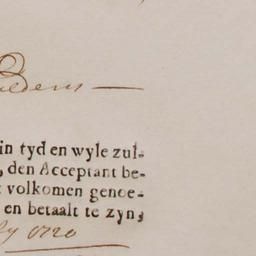 in tyd en wyle zul-
, den Acceptant be-
volkomen genoe-
en betaalt te zyn;
1720